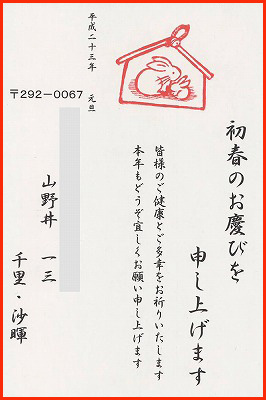 初春のお慶びを
申し上げます
皆様のご健康とご多幸をお祈りいたします
本年もどうぞ宜しくお願い申し上げます
平成二十三年 元旦
〒292-0067
山野井 一三
千里・沙暉